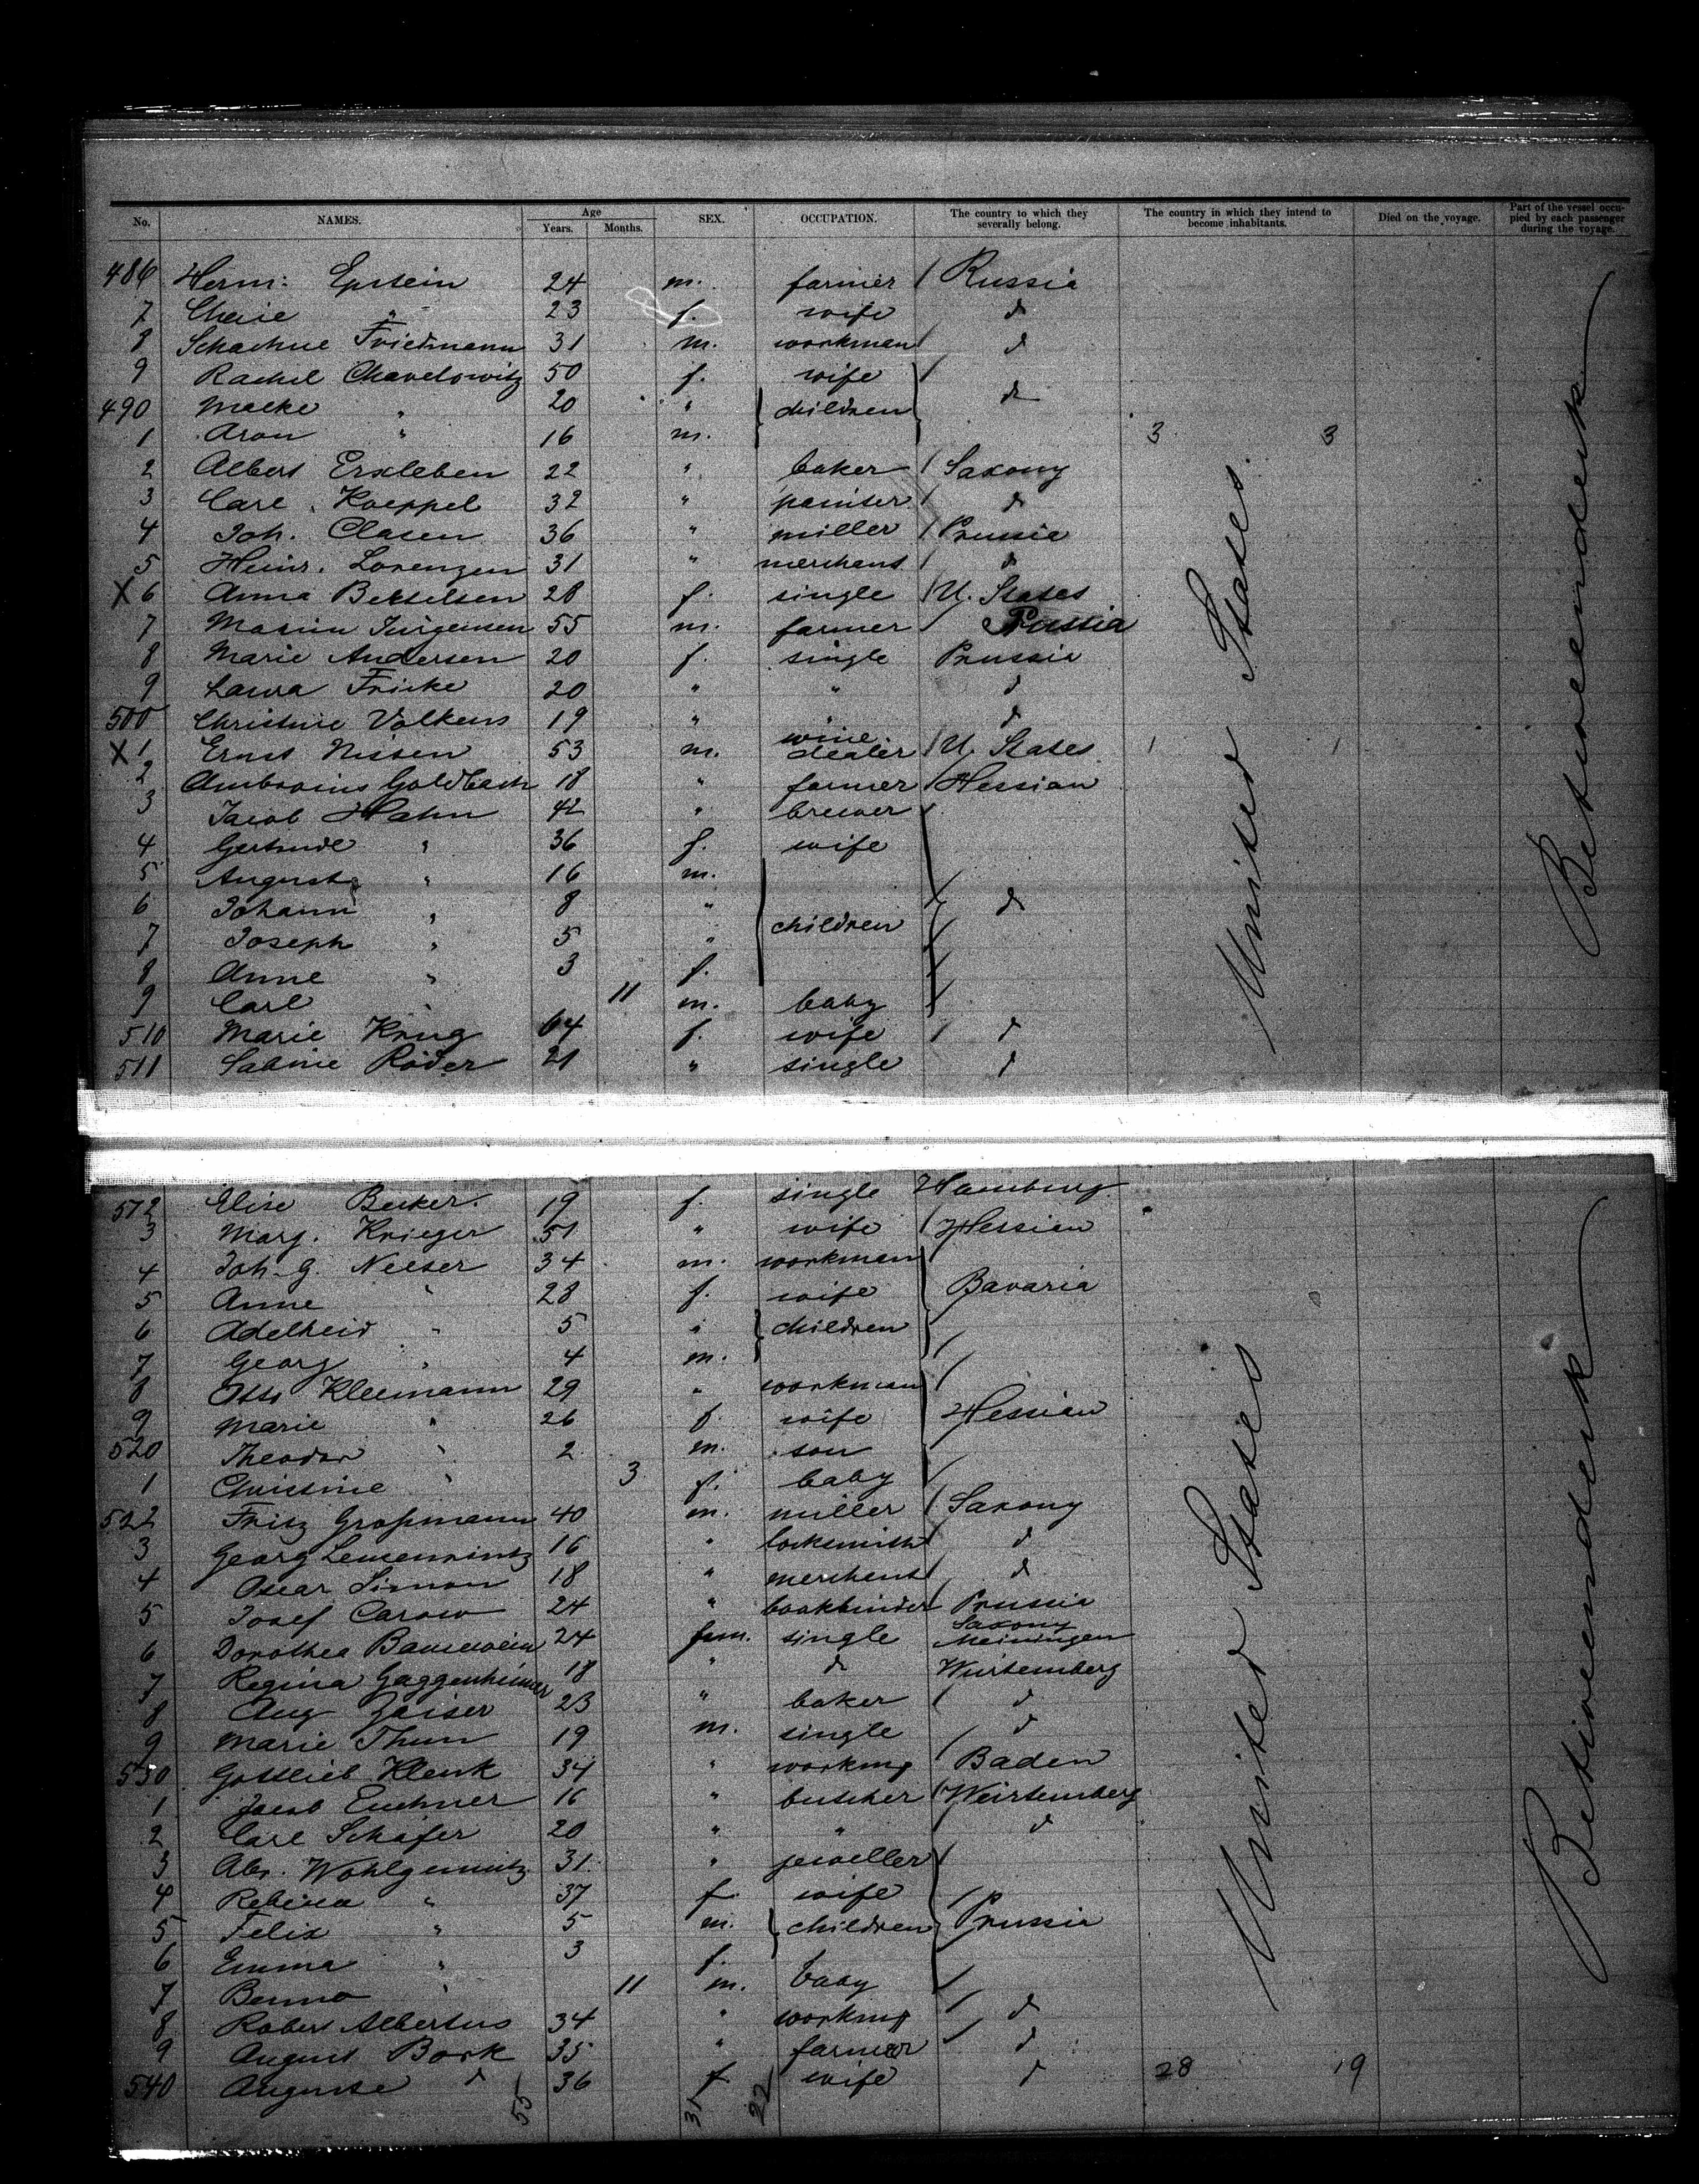 No. NAMES. Age Years. Months. SEX. OCCUPATION. The country to which they severally belong. The country in which they intend to become inhabitants. Died on the voyage. Part of the vessel occupied by each passenger during the voyage.
486 Herm: Epstein 24 m. farmer Russia
7 Chaie " 23 f. wife d
8 Schachne Friedmann 31 m. workman d
9 Rachel Chavelowitz 50 f. wife
490 Macke " 20 " children d
1 Aron " 16 m. 3 3
2 Albert Erxleben 22 " baker Saxony
3 Carl Koeppel 32 " painter d
4 Joh. Clasen 36 " miller Prussia
5 Heinr. Lorenzen 31 " merchant d
X 6 Anna Bertelsen 28 f. single U. States
7 Jürgensen 55 m. farmer Prussia
8 Marie Andersen 20 f. single Prussia
9 Laura Fricke 20 " " d
500 Christine Volkens 19 " " d
X 1 Ernst Nissen 53 m. wine dealer U. States 1 1
2 Ambrosius Goldbach 18 " farmer Hessian
3 Jacob Hahn 42 " brewer
4 Gertrude " 36 f. wife
5 August " 16 m.
6 Johann " 8 " d
7 Joseph " 5 " children
8 Anne " 3 f.
9 Carl " 11 m. baby
510 Marie Krug 64 f. wife d
511 Sabine Röder 21 " single d
United States
Betweendenk
512 Elise Becker. 19 f. single Hamburg
3 Marg. Krieger 51 " wife Hessian
4 Joh. G. Neeser 34 m. workman
5 Anne " 28 f. wife Bavaria
6 Adelheid " 5 " children
7 Georg " 4 m.
8 Otto Kleemann 29 " workman
9 Marie " 26 f. wife Hessian
520 Theodor " 2 m. son
1 Christine " 3 f. baby
522 Fritz Großmann 40 m. miller Saxony
3 Georg 16 " locksmith d
4 Oscar Simon 18 " merchant d
5 Josef Carow 24 " bookbinder Prussia
6 Dorothea Bauserwein 24 fem. single Saxony Meiningen
7 Regina Gaggenheimer 18 " d Würtemberg
8 Aug Zaiser 23 " baker d
9 Marie Thun 19 m. single d
530 Gottlieb Klenk 34 " workmg Baden
1 Jacob Euchner 16 " butcher Würtemberg
2 Carl Schäfer 20 " " d
3 Abr. Wohlgemuth 31 " jeweller
4 Rebecca " 37 f. wife
5 Felix " 5 m. children Prussia
6 Emma " 3 f.
7 Benno " 11 m. baby
8 Robert Albertus 34 " workmg d
9 August Bork 35 " farmer d
540 Auguste d 36 f wife d 28 19
55 31 22
United States
Betweendenk